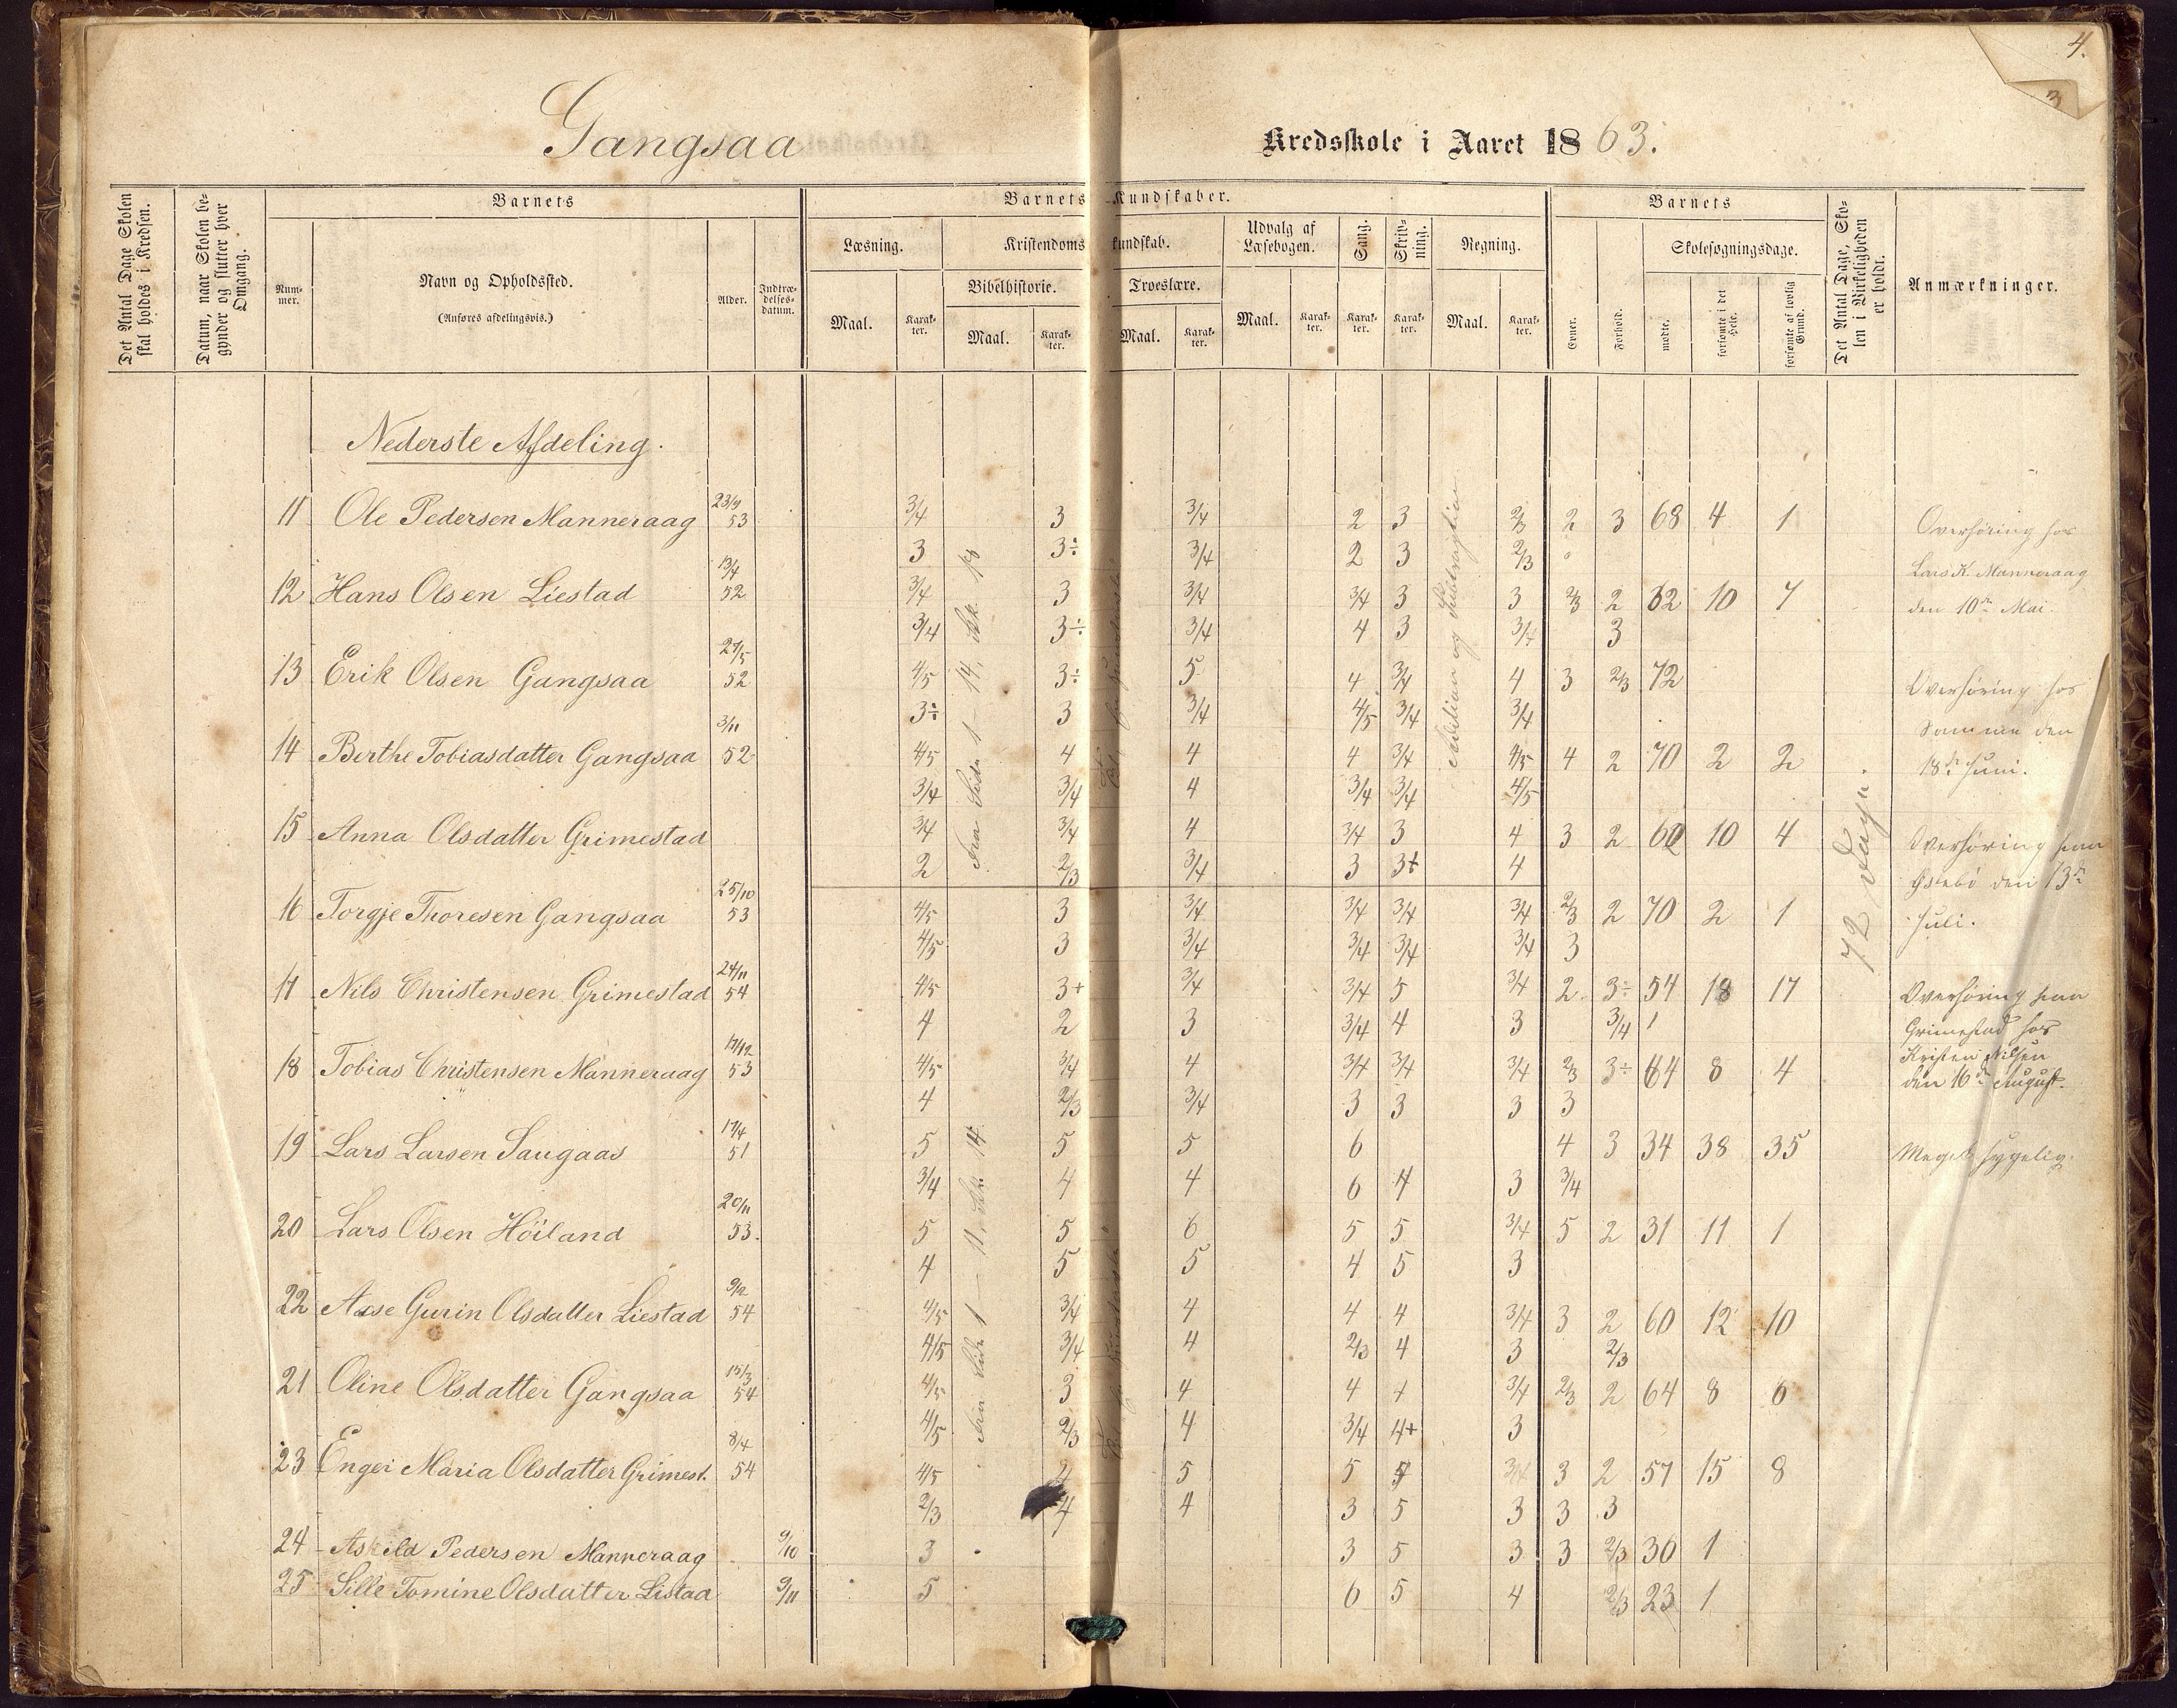 4.
3
Gangsaa
Kredsskole i Aaret 1863.
Det Antal Dage Skolen skal holdes i Kredsen.
Datum, naar Skolen begynder og slutter hver Omgang.
Barnets
Nummer.
Navn og Opholdssted.
(Anføres afdelingsvis.)
Alder.
Indtrædelsesdatum.
Barnets Kundskaber.
Læsning.
Kristendomskundskab.
Udvalg af Læsebogen.
Sang.
Skrivning.
Regning.
Bibelhistorie.
Troeslære.
Maal. Karakter. Maal. Karakter. Maal. Karakter. Maal. Karakter. Karakter. Karakter. Maal. Karakter.
Barnets
Evner.
Forhold.
Skolesøgningsdage.
mødte.
forsømte i det Hele.
forsømte af lovlig Grund.
Det Antal Dage, Skolen i Virkeligheden er holdt.
Anmærkninger.
Nederste Afdeling.
11 Ole Pedersen Manneraag 23/9 53 3/4 3 3/4 2 3 2/3 2 3 68 4 1
3 3÷ 3/4 2 3 2/3
12 Hans Olsen Liestad 13/4 52 3/4 3 3/4 3/4 3 3 2/3 2 62 10 7
3/4 3÷ 3/4 4 3 3/4 3
13 Erik Olsen Gangsaa 27/5 52 4/5 3÷ 5 4 3/4 4 3 2/3 72
3÷ 3 3/4 4/5 3/4 3/4
14 Berthe Tobiasdatter Gangsaa 3/11 52 4/5 4 4 4 3/4 4/5 4 2 70 2 2
3/4 3/4 4 3/4 3/4 4/5
15 Anna Olsdatter Grimestad 3/4 3/4 4 3/4 3 4 3 2 60 10 4
2 2/3 3/4 3 3+ 4
16 Torgje Thoresen Gangsaa 25/10 53 4/5 3 3/4 3/4 3/4 3/4 2/3 2 70 2 1
4/5 3 3/4 3/4 3/4 3/4 3
17 Nils Christensen Grimestad 24/11 54 4/5 3+ 3/4 3/4 5 3/4 2 3÷ 54 18 17
4 2 3 3/4 4 3 3/4 1
18 Tobias Christensen Manneraag 17/12 53 4/5 3/4 4 3/4 3/4 3/4 2/3 3÷ 64 8 4
4 2/3 3/4 3 3 3 3
19 Lars Larsen Saugaas 17/4 51 5 5 5 6 4 3 34 38 35
3/4 4 4 6 4 3 3/4
20 Lars Olsen Höiland 20/11 53. 5 5 6 5 5 3/4 5 2 31 11 1
4 5 5 4 5 3
22 Aase Gurin Olsdatter Liestad 9/2 54 4/5 3/4 4 4 4 3/4 3 2 60 12 10
4/5 3/4 4 2/3 4 3 2/3
21 Oline Olsdatter Gangsaa 15/3 54 4/5 3 4 4 4 3/4 2/3 2 64 8 6
4/5 2/3 4 3/4 4+ 3
23 Engei Maria Olsdatter Grimest. 8/4 54 4/5 5 5 3/4 3 2 57 15 8
2/3 4 4 3 5 3 3 3
24 Askild Pedersen Manneraag 9/10 3 3 5 3 3 2/3 36 1
25 Sille Tomine Olsdatter Listad 9/11 5 6 5 4 2/3 23 1
Fra Side 1 - 14,
Fra Side 1 - 11,
Addition og Subtraction
72 Dage
Overhøring hos
Lars K. Manneraag
den 10de Mai.
Overhøring hos
Samme den
18de Juni.
Overhøring paa
den 13de
Juli.
Overhøring paa
Grimestad hos
Kristen Nilsen
den 16de August.
Meget sygelig.